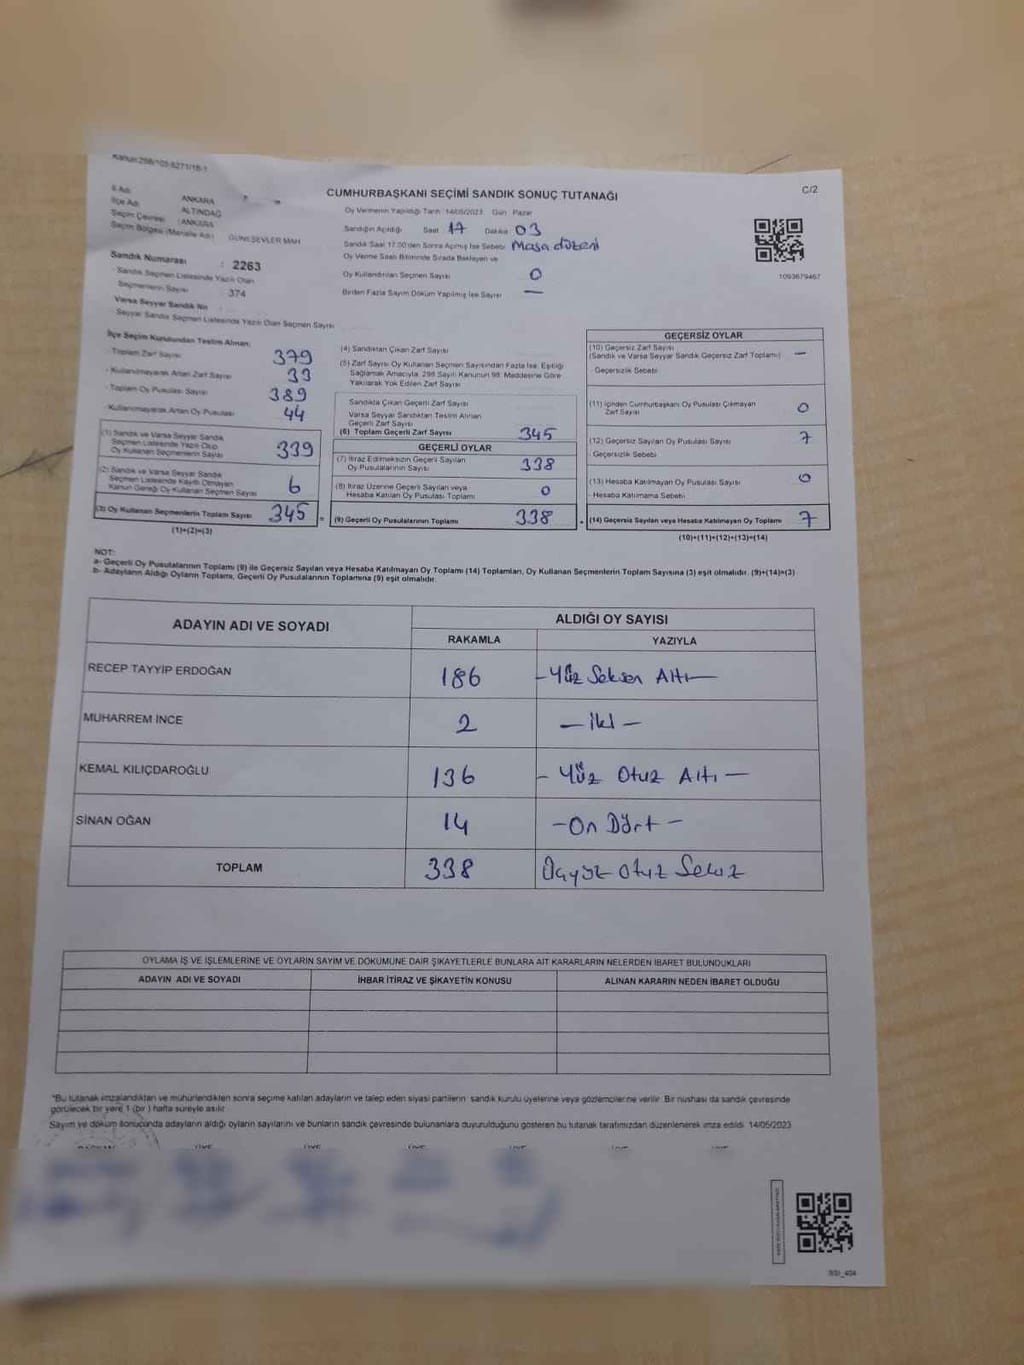 Kanun:298/105-6271/18-1
C/2
CUMHURBAŞKANI SEÇİMİ SANDIK SONUÇ TUTANAĞI
İl Adı ANKARA
İlçe Adı ALTINDAĞ
Seçim Çevresi :ANKARA
Seçim Bölgesi (Mahalle Adı) GÜNEŞEVLER MAH
Sandık Numarası : 2263
Sandık Seçmen Listesinde Yazılı Olan
Seçmenlerin Sayısı : 374
Varsa Seyyar Sandık No
Seyyar Sandık Seçmen Listesinde Yazılı Olan Seçmen Sayısı
Oy Vermenin Yapıldığı Tarih 14/05/2023 Gün Pazar
Sandığın Açıldığı Saat 17 Dakika 03
Sandık Saat 17:00'den Sonra Açılmış İse Sebebi Masa düzeni
Oy Verme Saati Bitiminde Sırada Bekleyen ve
Oy Kullandırılan Seçmen Sayısı 0
Birden Fazla Sayım Döküm Yapılmış İse Sayısı —
1093679467
İlçe Seçim Kurulundan Teslim Alınan:
- Toplam Zarf Sayısı 379
- Kullanılmayarak Artan Zarf Sayısı 33
- Toplam Oy Pusulası Sayısı 389
- Kullanılmayarak Artan Oy Pusulası 44
(1) Sandık ve Varsa Seyyar Sandık
Seçmen Listesinde Yazılı Olup
Oy Kullanan Seçmenlerin Sayısı 339
(2) Sandık ve Varsa Seyyar Sandık
Seçmen Listesinde Kayıtlı Olmayan
Kanun Gereği Oy Kullanan Seçmen Sayısı 6
(3) Oy Kullanan Seçmenlerin Toplam Sayısı 345 =
(1)+(2)=(3)
(4) Sandıktan Çıkan Zarf Sayısı
(5) Zarf Sayısı Oy Kullanan Seçmen Sayısından Fazla İse, Eşitliği
Sağlamak Amacıyla, 298 Sayılı Kanunun 98. Maddesine Göre
Yakılarak Yok Edilen Zarf Sayısı
Sandıkta Çıkan Geçerli Zarf Sayısı
Varsa Seyyar Sandıktan Teslim Alınan
Geçerli Zarf Sayısı
(6) Toplam Geçerli Zarf Sayısı 345
GEÇERLİ OYLAR
(7) İtiraz Edilmeksizin Geçerli Sayılan
Oy Pusulalarının Sayısı 338
(8) İtiraz Üzerine Geçerli Sayılan veya
Hesaba Katılan Oy Pusulası Toplamı 0
(9) Geçerli Oy Pusulalarının Toplamı 338
GEÇERSİZ OYLAR
(10) Geçersiz Zarf Sayısı
(Sandık ve Varsa Seyyar Sandık Geçersiz Zarf Toplamı) —
- Geçersizlik Sebebi
(11) İçinden Cumhurbaşkanı Oy Pusulası Çıkmayan
Zarf Sayısı 0
(12) Geçersiz Sayılan Oy Pusulası Sayısı 7
- Geçersizlik Sebebi
(13) Hesaba Katılmayan Oy Pusulası Sayısı 0
- Hesaba Katılmama Sebebi
(14) Geçersiz Sayılan veya Hesaba Katılmayan Oy Toplamı 7
(10)+(11)+(12)+(13)=(14)
NOT:
a- Geçerli Oy Pusulalarının Toplamı (9) ile Geçersiz Sayılan veya Hesaba Katılmayan Oy Toplamı (14) Toplamları, Oy Kullanan Seçmenlerin Toplam Sayısına (3) eşit olmalıdır. (9)+(14)=(3)
b- Adayların Aldığı Oyların Toplamı, Geçerli Oy Pusulalarının Toplamına (9) eşit olmalıdır.
ADAYIN ADI VE SOYADI
ALDIĞI OY SAYISI
RAKAMLA YAZIYLA
RECEP TAYYİP ERDOĞAN 186 - Yüz Seksen Altı —
MUHARREM İNCE 2 — iki —
KEMAL KILIÇDAROĞLU 136 - Yüz Otuz Altı —
SİNAN OĞAN 14 - On Dört -
TOPLAM 338 Üçyüz otuz Sekiz
OYLAMA İŞ VE İŞLEMLERİNE VE OYLARIN SAYIM VE DÖKÜMÜNE DAİR ŞİKAYETLERLE BUNLARA AİT KARARLARIN NELERDEN İBARET BULUNDUKLARI
ADAYIN ADI VE SOYADI İHBAR İTİRAZ VE ŞİKAYETİN KONUSU ALINAN KARARIN NEDEN İBARET OLDUĞU
"Bu tutanak imzalandıktan ve mühürlendikten sonra seçime katılan adayların ve talep eden siyasi partilerin sandık kurulu üyelerine veya gözlemcilerine verilir. Bir nüshası da sandık çevresinde
görülecek bir yere 1 (bir) hafta süreyle asılır.
Sayım ve döküm sonucunda adayların aldığı oyların sayılarını ve bunların sandık çevresinde bulunanlara duyurulduğunu gösteren bu tutanak tarafımızdan düzenlenerek imza edildi. 14/05/2023